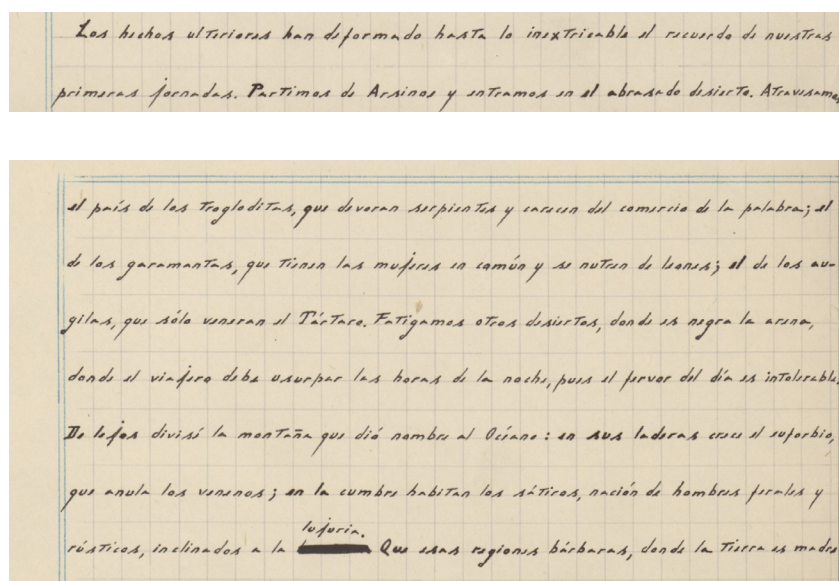 Los hechos ulteriores han deformado hasta lo inextricable el recuerdo de nuestras
primeras jornadas. Partimos de Arsinoe y entramos en el abrasado desierto. Atravesamos
el país de los trogloditas, que devoran serpientes y carecen del comercio de la palabra; el
de los garamantas, que tienen las mujeres en común y se nutren de leones; el de los au-
gilas, que sólo veneran el Tártaro. Fatigamos otros desiertos, donde es negra la arena,
donde el viajero debe usurpar las horas de la noche, pues el fervor del día es intolerable.
De lejos divisé la montaña que dió nombre al Océano: en sus laderas crece el euforbio,
que anula los venenos; en la cumbre habitan los sátiros, nación de hombres ferales y
lujuria.
rústicos, inclinados a la Que esas regiones bárbaras, donde la tierra es madre